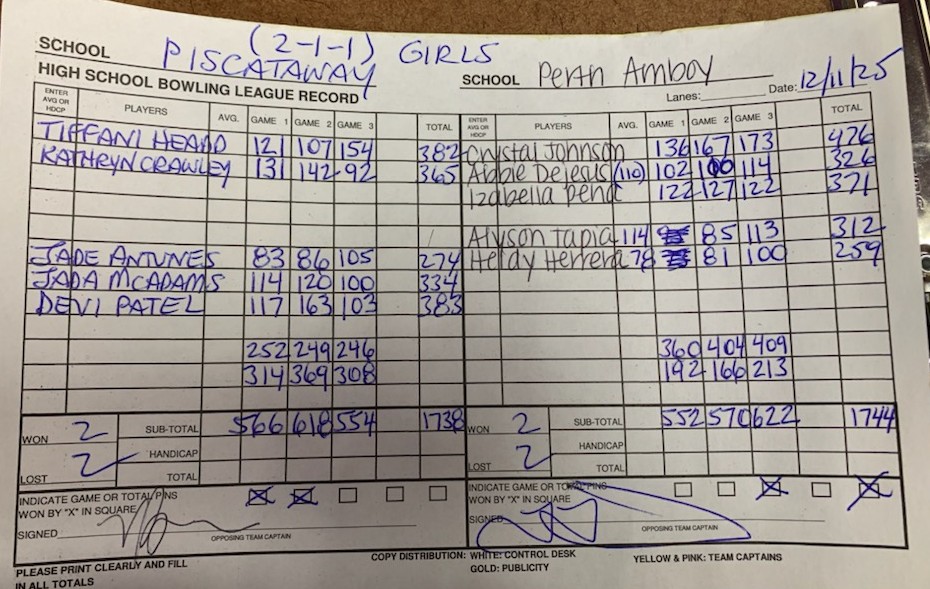 (2-1-1)
SCHOOL PISCATAWAY GIRLS
SCHOOL Perth Amboy
HIGH SCHOOL BOWLING LEAGUE RECORD
Lanes: Date: 12/11/25
ENTER AVG OR HDCP PLAYERS AVG. GAME 1 GAME 2 GAME 3 TOTAL ENTER AVG OR HDCP PLAYERS AVG. GAME 1 GAME 2 GAME 3 TOTAL
TIFFANI HEADD 121 107 154 382 Crystal Johnson 136 167 173 476
KATHRYN CRAWLEY 131 142 92 365 Abbie DeJesus (110) 102 100 114 326
Izabella Pena 122 127 122 371
Alyson Tapia 114 85 113 312
JADE ANTUNES 83 86 105 274 Heidy Herrera 78 81 100 259
JADA MCADAMS 114 120 100 334
DEVI PATEL 117 163 103 383
252 249 246 360 404 409
314 369 308 192 166 213
WON 2 SUB-TOTAL 566 618 554 1738 WON 2 SUB-TOTAL 552 570 622 1744
HANDICAP HANDICAP
LOST 2 TOTAL LOST 2 TOTAL
INDICATE GAME OR TOTAL PINS WON BY "X" IN SQUARE X X INDICATE GAME OR TOTAL PINS WON BY "X" IN SQUARE X X
SIGNED OPPOSING TEAM CAPTAIN SIGNED OPPOSING TEAM CAPTAIN
PLEASE PRINT CLEARLY AND FILL IN ALL TOTALS
COPY DISTRIBUTION: WHITE: CONTROL DESK YELLOW & PINK: TEAM CAPTAINS
GOLD: PUBLICITY